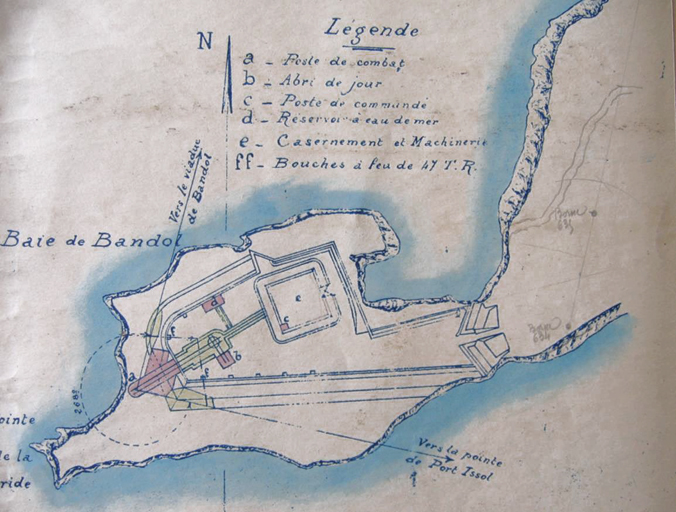 Légende
N
a - Poste de combat
b - Abri de jour
c - Poste de commande
d - Réservoir à eau de mer
e - Casernement et Machinerie
ff - Bouches à feu de 47 T.R.
Vers le viaduc
de Bandol
Baie de Bandol
ointe
de la
ride
Vers la pointe
de Port Issol
a
b
c
d
e
f
f